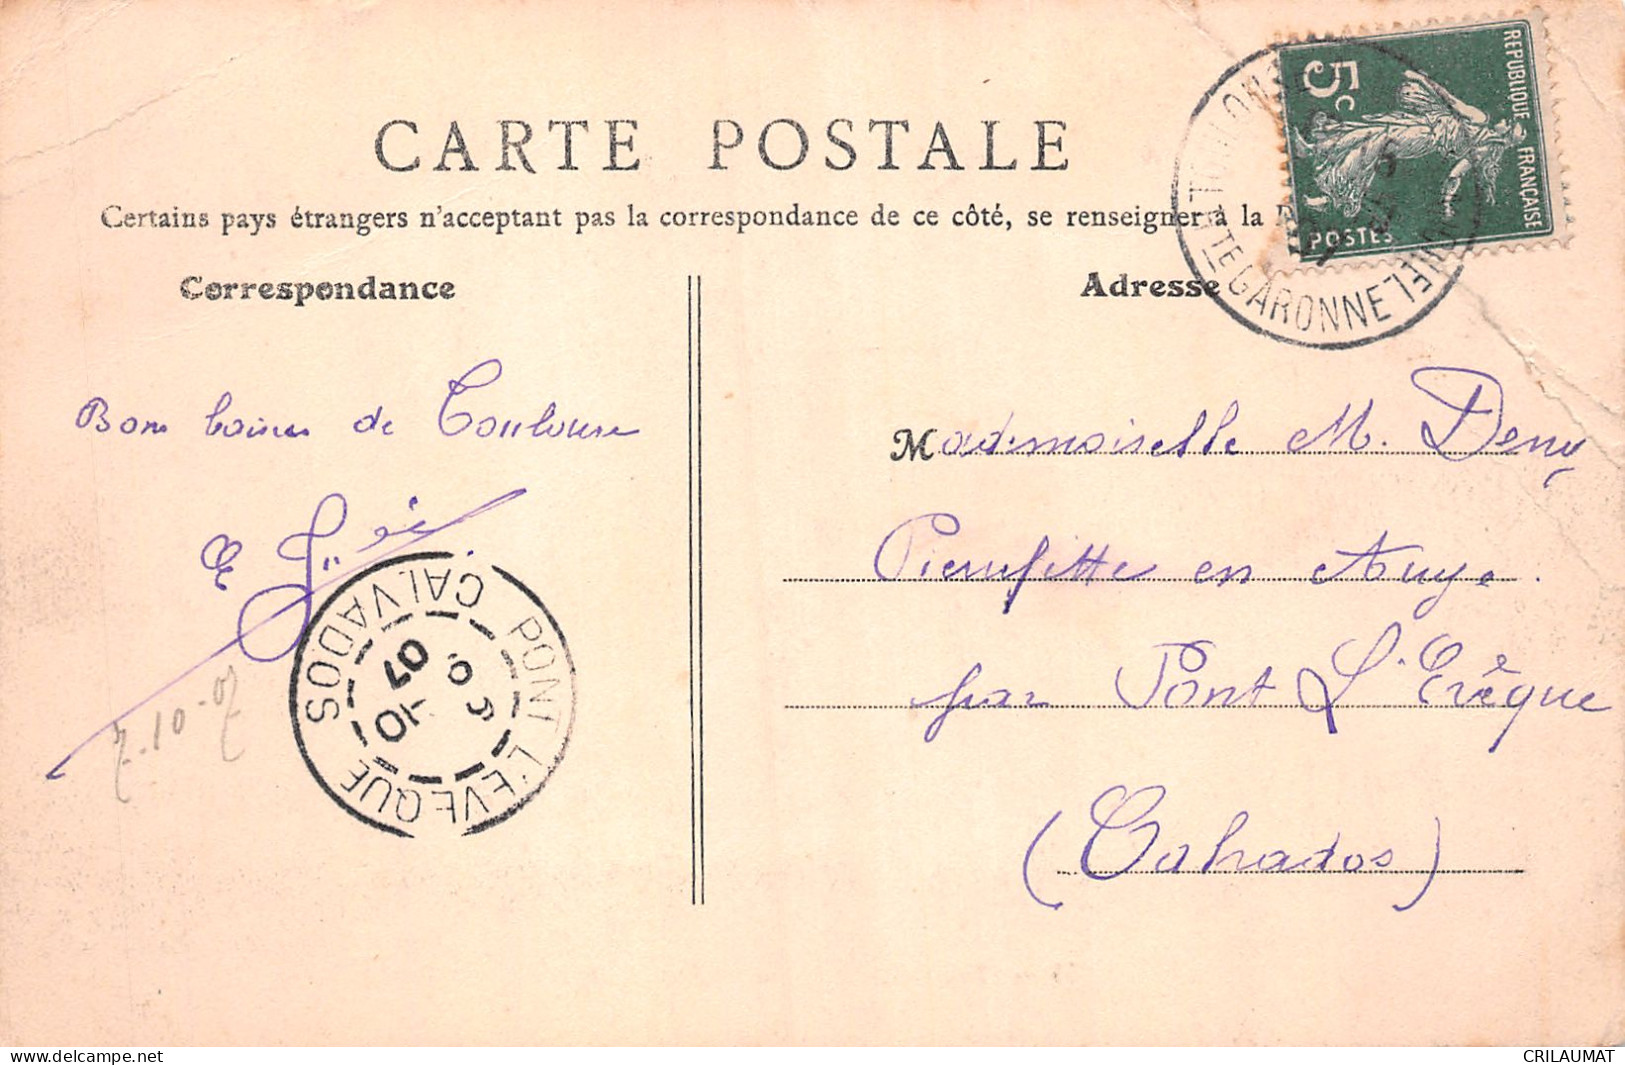 CARTE POSTALE
Certains pays étrangers n'acceptant pas la correspondance de ce côté, se renseigner à la
Correspondance
Adresse
REPUBLIQUE FRANÇAISE
5c
POSTES
TOULOUSE
HTE GARONNE
Bons baisers de Toulouse
Mademoiselle M. Deny
Pierrefitte en Auge.
par Pont L'Evêque
(Calvados)
PONT L'EVEQUE
CALVADOS
10
07
7-10-07
delcampe.net
CRILAUMAT